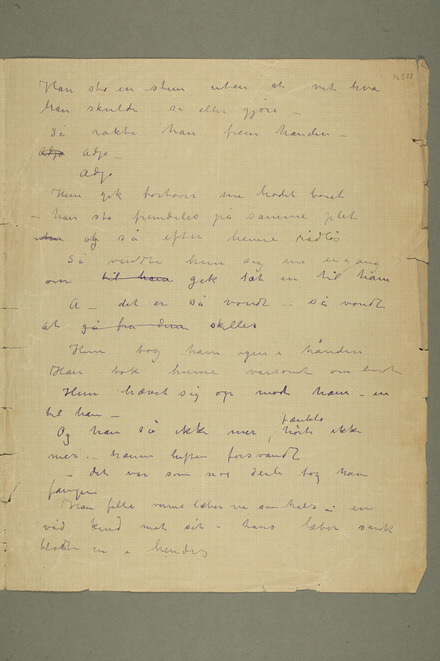 Han sto en stun uten at vite hva
han skulde si eller gjøre –
Så rakte han frem hånden –
Adjø Adjø –
Adjø
Hun gik bortover me hodet bøiet
– han sto fremdeles på samme plet
og så efter henne rådløs
Så vendte hun sig me engang
om til ham gik tæt en til ham
A – det er så vondt – så vondt
at gå fra dem skilles
Hun tog ham igen i hånden
Han tok henne varsomt om livet
Hun hævet sig op mod ham – en
til han –
Og han så ikke mer, hørte ikke
fænkte
mer – hanns forsvandt
– det var som noe tog ham
fangen
Han følte varme læber me sin hals – en
våd kind mot sit – hans læber sank
bløtt in i hendes